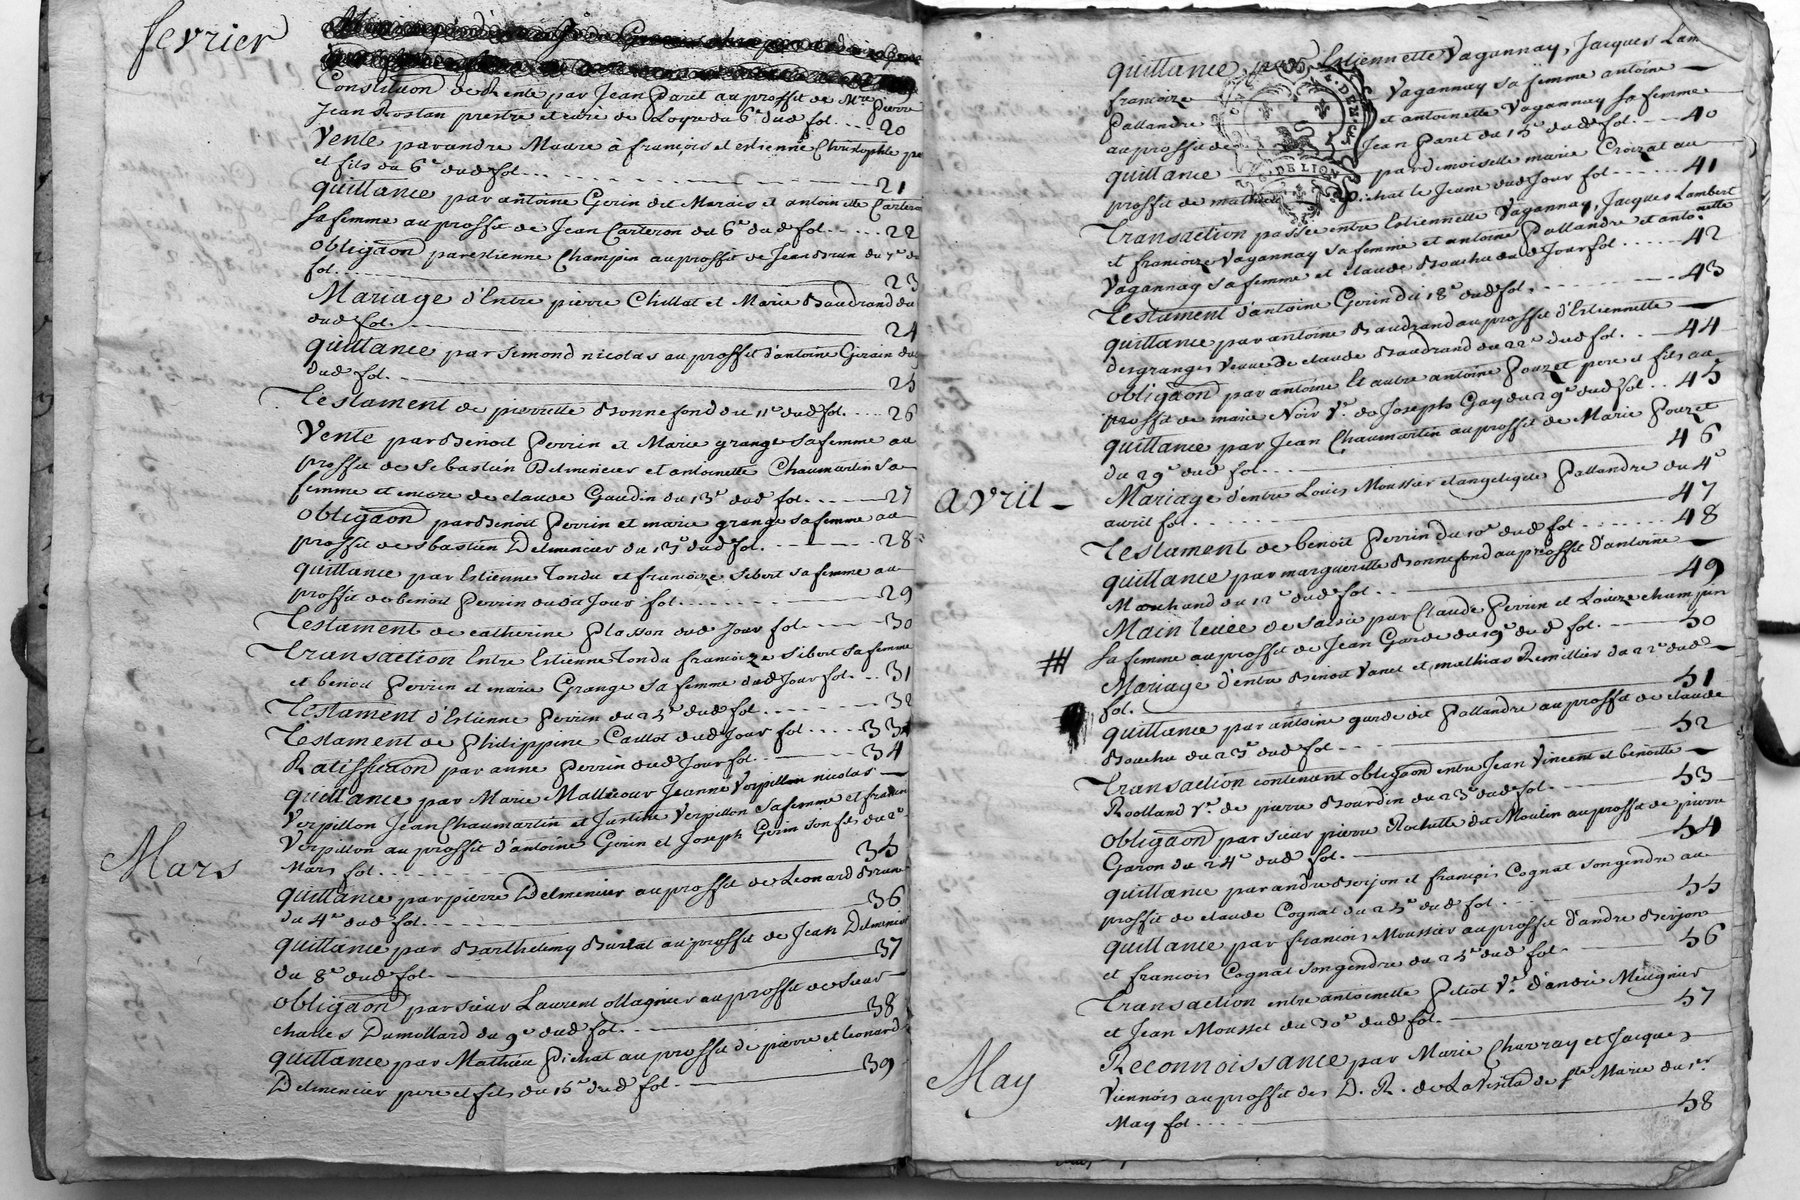 fevrier
Constituon de Rente par Jean Paret au proffit de Mre pierre
Jean Rostan prestre et curé de Loyre du 6e dud fol. 20
Vente par andre Madre à françois et estienne Christophle pe
et fils du 6e dud fol. 21
quittance par antoine Gerin dit Marais et antoinette Carteron
sa femme au proffit de Jean Carteron du 6e dud fol. 22
obligaon par estienne Champin au proffit de Jean Brun du 7e du
fol. 23
Mariage d'Entre pierre Chillat et Marie Baudrand du
dud fol. 24
quittance par Simond nicolas au proffit d'antoine Girain du
dud fol. 25
Testament de pierrette Bonnefond du 11e dud fol. 26
Vente par Benoit Perrin et Marie grange sa femme au
proffit de Sebastien Delmencier et antoinette Chaumartin sa
femme et encore de claude Gaudin du 13e dud fol. 27
obligaon par Benoit Perrin et marie grange sa femme au
proffit de sbastien Delmencier du 13e dud fol. 28
quittance par Estienne Tondu et francoize Sibert sa femme au
proffit de benoit Perrin dudit Jour fol. 29
Testament de catherine Plasson dud Jour fol. 30
Transaction Entre Estienne Tondu francoize Sibert sa femme
et benoit Perrin et marie Grange sa femme dud Jour fol. 31
Testament d'Estienne Perrin du 25e dud fol. 32
Testament de Philippine Caillot dud Jour fol. 33
Ratiffication par anne Perrin dud Jour fol. 34
quittance par Marie Mallecour Jeanne Verpillon nicolas
Verpillon Jean Chaumartin et Justine Verpillon sa femme et francois
Verpillon au proffit d'antoine Gerin et Joseph Gerin son fils du 2e
Mars
Mars fol. 35
quittance par pierre Delmencier au proffit de Leonard Brun
du 4e dud fol. 36
quittance par Barthelemy Burlat au proffit de Jean Delmencier
du 8e dud fol. 37
obligaon par sieur Laurent ollagnier au proffit de Sieur
charles Dumollard du 9e dud fol. 38
quittance par Mathieu Pichat au proffit de pierre et leonard
Delmencier pere et fils du 15e dud fol. 39
quittance par Estiennette Vagannay, Jacques Lam
francoize Vagannay sa femme antoine
Pallandre et antoinette Vagannay sa femme
au proffit de Jean Paret du 15e dud fol. 40
quittance par demoiselle marie Croizat au
proffit de mathieu Pichat le Jeune dud Jour fol. 41
Transaction passée entre Estiennette Vagannay, Jacques Lambert
et francoize Vagannay sa femme et antoine Pallandre et antoinette
Vagannay sa femme et claude Bouchu dud Jour fol. 42
Testament d'antoine Gerin du 18e dud fol. 43
quittance par antoine Baudrand au proffit d'Estiennette
desgranges veuve de claude Baudrand du 22e dud fol. 44
obligaon par antoine et autre antoine Pouzet pere et fils au
proffit de marie Noir Ve. de Joseph Gay du 29e dud fol. 45
quittance par Jean Chaumartin au proffit de Marie Pouzet
du 29e dud fol. 46
avril
Mariage d'entre Louis Moussar et angelique Pallandre du 4e
avril fol. 47
Testament de benoit Perrin du 10e dud fol. 48
quittance par marguerite Bonnefond au proffit d'antoine
Mouchand du 12e dud fol. 49
Main levée de saisie par Claude Perrin et Louize champin
sa femme au proffit de Jean Garde du 19e dud fol. 50
Mariage d'entre Benoit Vanel et mathias Remillier du 22e dud
fol. 51
quittance par antoine garde dit Pallandre au proffit de claude
Bouchu du 23e dud fol. 52
Transaction contenant obligaon entre Jean Vincent et benoitte
Roolland Ve. de pierre Bourdin du 23e dud fol. 53
obligaon par sieur pierre Rochette du Moulin au proffit de pierre
Garon du 24e dud fol. 54
quittance par andre Berjon et françois Cognat son gendre au
proffit de claude Cognat du 25e dud fol. 55
quittance par francois Moussier au proffit d'andre Berjon
et francois Cognat son gendre du 25e dud fol. 56
Transaction entre antoinette Pitiot Ve. d'andré Meugnier
et Jean Mousset du 30e dud fol. 57
May
Reconnoissance par Marie Charray et Jacques
Viennois au proffit des D. R. de La Visita de Ste Marie du 1er
May fol. 58